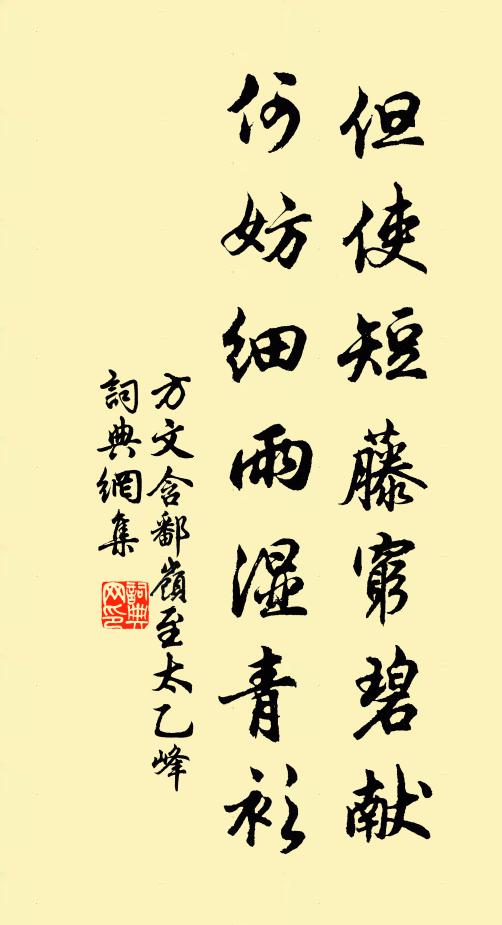 但使短藤窮碧献
何妨細雨湿青衫
方文含鄱嶺至太乙峰
詞典網集
詞典網印